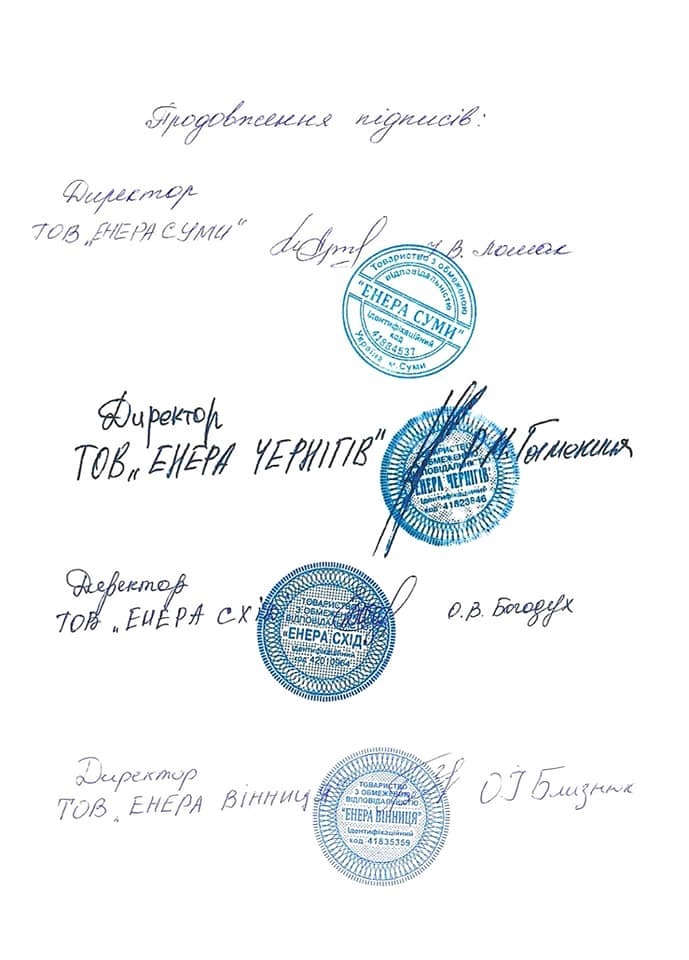 Продовження підписів:
Директор
ТОВ „ЕНЕРА СУМИ"
В. Ломак
Товариство з обмеженою
відповідальністю
"ЕНЕРА СУМИ"
ідентифікаційний
код
41884537
Україна м. Суми
Директор
ТОВ „ЕНЕРА ЧЕРНІГІВ"
ТОВАРИСТВО
З ОБМЕЖЕНОЮ
ВІДПОВІДАЛЬНІСТЮ
"ЕНЕРА ЧЕРНІГІВ"
Ідентифікаційний
код 41823846
Директор
ТОВ „ЕНЕРА СХІД
О.В. Богодух
ТОВАРИСТВО
З ОБМЕЖЕНОЮ
ВІДПОВІДАЛЬНІСТЮ
"ЕНЕРА СХІД"
Ідентифікаційний
код 42010964
Директор
ТОВ „ЕНЕРА ВІННИЦЯ
О І Близнюк
ТОВАРИСТВО
З ОБМЕЖЕНОЮ
ВІДПОВІДАЛЬНІСТЮ
"ЕНЕРА ВІННИЦЯ"
Ідентифікаційний
код 41835359